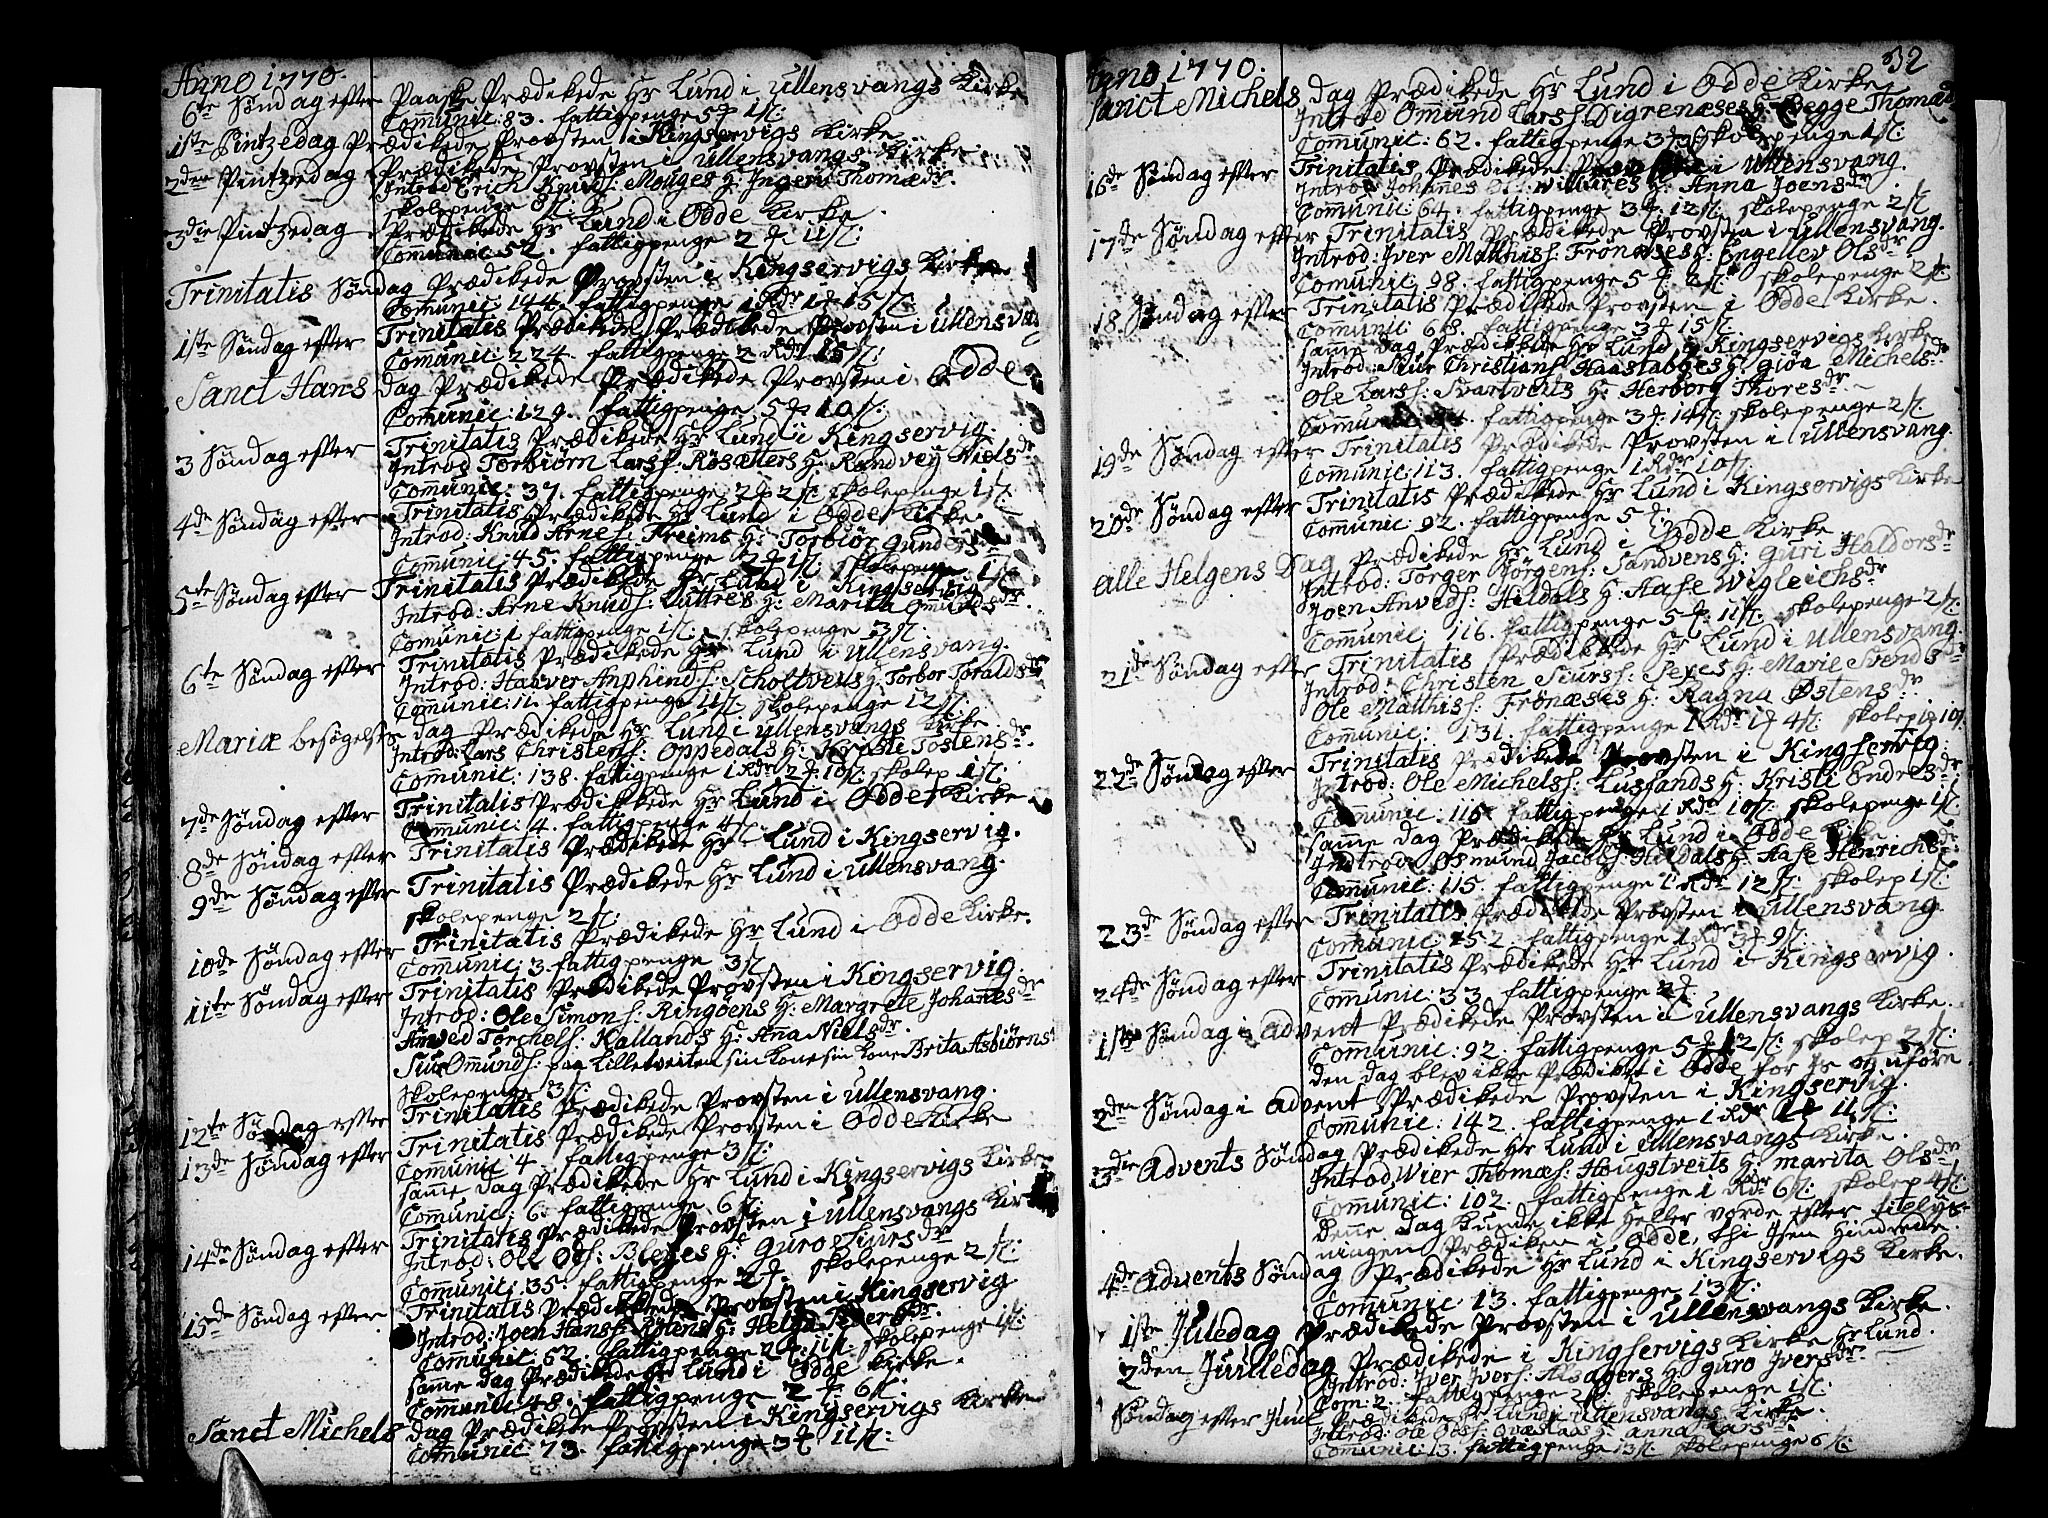 Anno 1770.
6te Søndag efter Paaske Prædikede Hr Lund i Ullensvangs Kirke
Comunic: 83. fattigpenge 5
1ste Pintzedag Prædikede Provsten i Kingservigs Kirke
2den Pintzedag Prædikede Provsten i Ullensvangs Kirke
Introd Erich Knuds: Mouges H: Ingeri Thomædr.
skolepenge
3die Pintzedag Prædikede Hr Lund i Odde Kirke.
Comunic 52. fattigpenge 2 11
Trinitatis Søndag Prædikede Provsten i Kingservigs Kirke
Comunic: 144. fattigpenge 1 Rdr 1 15
1ste Søndag efter Trinitatis Prædikede Prædikede Provsten i Ullensvang
Comunic: 224. fattigpenge 2 Rdr 15
Sanct Hans dag Prædikede Prædikede Provsten i Odde
Comunic: 129. fattigpenge 5 10
3 Søndag efter Trinitatis Prædikede Hr Lund i Kingservig.
Introd Torbiørn Larss: Røsætters H: Randvey Nielsdr
Comunic: 37. fattigpenge 2 2 skolepenge 1
4de Søndag efter Trinitatis Prædikede Hr Lund i Odde Kirke.
Introd: Knud Arnes: Freims H: Torbiør
Comunic: 45. fattigpenge 2 1 skolepenge
5te Søndag efter Trinitatis Prædikede Hr Lund i Kingservig
Introd: Arne Knuds: Luttres H: Marita Omundsdr.
Comunic: 1 fattigpenge 1 skolepenge 3
6te Søndag efter Trinitatis Prædikede Hr Lund i Ullensvang.
Introd: Haaver Anphinds: Scholtveits H: Torbor Toraldsdr
Comunic: 11. fattigpenge 11 skolepenge 12
Mariæ besøgelses dag Prædikede Hr Lund i Ullensvangs Kirke.
Introd: Lars Christens: Oppedals H: Tostensdr.
Comunic: 138. fattigpenge 1 Rdr 2 10 skolep 1
7de Søndag efter Trinitatis Prædikede Hr Lund i Odde Kirke
Comunic: 4. fattigpenge 4
8de Søndag efter Trinitatis Prædikede Hr Lund i Kingservig.
9de Søndag efter Trinitatis Prædikede Hr Lund i Ullensvang.
skolepenge 2
10de Søndag efter Trinitatis Prædikede Hr Lund i Odde Kirke.
Comunic: 3. fattigpenge 3
11te Søndag efter Trinitatis Prædikede Provsten i Kingservig.
Introd: Ole Simons: Ringøens H: Margrete Johannesdr
Amved Torchels: Hallands H: Anna Nielsdr.
Siur Omunds: paa Lilletveiten sin Kone sin Kone Brita Asbiørns
skolepenge 3
12te Søndag efter Trinitatis Prædikede Provsten i Ullensvang.
13de Søndag efter Trinitatis Prædikede Provsten i Odde Kirke
Comunic 4. fattigpenge 3
samme dag Prædikede Hr Lund i Kingservigs Kirke
Comunic: 6. fattigpenge 6
14de Søndag efter Trinitatis Prædikede Provsten i Ullensvangs Kirke
Introd: Ole Ols: Bleyes H: Guro Siursdr
Comunic: 35. fattigpenge 2 skolepenge 2
15de Søndag efter Trinitatis Prædikede Provsten i Kingservig
Introd: Joen Hanss: H: Helga Iversdr.
Comunic: 62. fattigpenge 2 11 skolepenge 1
samme dag Prædikede Hr Lund i Odde Kirke.
Comunic: 48. fattigpenge 2 6
Sanct Michels dag Prædikede Provsten i Kingservigs Kirke
Comunic: 73. fattigpenge 3 11
32
Anno 1770.
Sanct Michels dag Prædikede Hr Lund i Odde Kirke.
Introd Omund Larss Digrenæses H: Begge Thomæd
Comunic: 62. fattigpenge 3 skolepenge 1
16de Søndag efter Trinitatis Prædikede Provsten i Ullensvang.
Introd Johannes Willures H: Anna Joensdr
Comunic: 64. fattigpenge 3 12 skolepenge 2
17de Søndag efter Trinitatis Prædikede Provsten i Ullensvang.
Introd: Iver Matthiss: Fronæses H: Engellev Olsdr
Comunic: 98. fattigpenge 5 2 skolepenge 2
18. Søndag efter Trinitatis Prædikede Provsten i Odde Kirke.
Comunic: 68. fattigpenge 3 15
samme dag Prædikede Hr Lund i Kingservigs Kirke
Introd: Siur Christians: Haastabbes H: Giøa Michelsdr
Ole Larss: Svartveits H: Herborg Thoresdr
Comunic: fattigpenge 3 14 skolepenge 2
19de Søndag efter Trinitatis Prædikede Provsten i Ullensvang.
Comunic: 113. fattigpenge 1 Rdr 10
20de Søndag efter Trinitatis Prædikede Hr Lund i Kingservigs Kirke
Comunic: 92. fattigpenge 5
alle Helgens Dag Prædikede Hr Lund i Odde Kirke
Introd: Torger Børgens: Sandvens H: Guri Haldorsdr
Joen Anveds: Hildals H: Aase Wigleichsdr
Comunic: 116. fattigpenge 5 11 skolepenge 2
21de Søndag efter Trinitatis Prædikede Hr Lund i Ullensvang.
Introd: Christen Siurs: Sexes H: Marie Svendsdr
Ole Matthis: Fronæses H: Ragna Østensdr
Comunic: 131. fattigpenge 1 Rdr 1 4 skolep 10
22de Søndag efter Trinitatis Prædikede Provsten i Kingservig.
Introd: Ole Michelss: Lusfands H: Kristi Endresdr
Comunic: 116 fattigpenge 1 Rdr 10 skolepenge 1
samme dag Prædikede Hr Lund i Odde Kirke.
Indtrod: Osmund Jacobs: Hildals H: Aase Henrichsdr:
Comunic: 115. fattigpenge 1 Rdr 12 skolep 1
23de Søndag efter Trinitatis Prædikede Provsten i Ullensvang.
Comunic: 152. fattigpenge 1 Rdr 3 9
24de Søndag efter Trinitatis Prædikede Hr Lund i Kingservig.
Comunic: 33. fattigpenge 2
1ste Søndag i Advent Prædikede Provsten i Ullensvangs Kirke.
Comunic: 92. fattigpenge 5 12 skolep 2
den dag blev ikke Prædiket i Odde for Is og uføre.
2den Søndag i Advent Prædikede Provsten i Kingservig.
Comunic: 142. fattigpenge 1 Rdr 1 11
3die Advents Søndag Prædikede Hr Lund i Ullensvangs Kirke.
Introd Wier Thomæs: Hougstveits H: Marita Olsdr
Comunic: 102. fattigpenge 1 Rdr 6 skolep 4
denne dag kunde ikke heller vorde efter litelys-
ningen Prædiken i Odde, thi Isen hindrede.
4de Advents Søndag Prædikede Hr Lund i Kingservigs Kirke.
Comunic 13. fattigpenge 13
1ste Juledag Prædikede Provsten i Ullensvangs Kirke.
2den Juilledag Prædikede i Kingservigs Kirke Hr Lund.
Introd: Iver Ivers: Alsagers H: Guro Iversdr.
Com: 2. fattigpenge 2 skolepenge 1
Søndag efter Juul Prædikede Hr Lund i Ullensvangs Kirke.
Introd: Ole Ols: H: Anna Larsdr:
Comunic: 13. fattigpenge 13 skolepenge 6